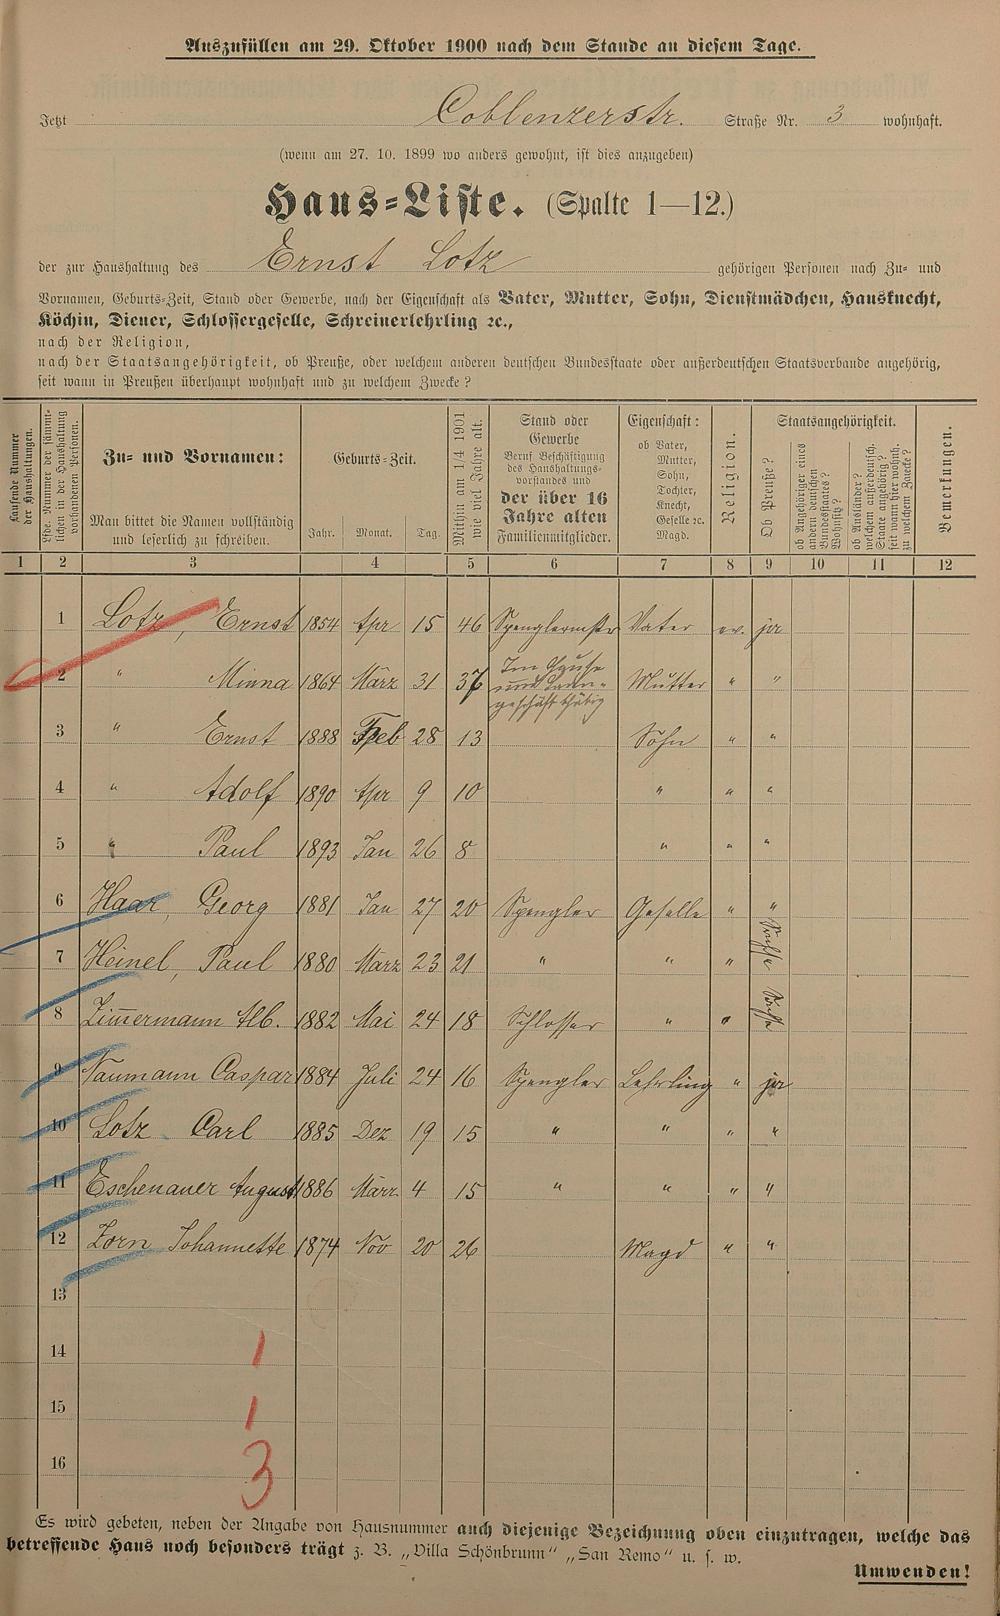 Auszufüllen am 29. Oktober 1900 nach dem Stande an diesem Tage.
Jetzt Coblenzerstr. Straße Nr. 3 wohnhaft.
(wenn am 27. 10. 1899 wo anders gewohnt, ist dies anzugeben)
Haus-Liste. (Spalte 1—12.)
der zur Haushaltung des Ernst Lotz gehörigen Personen nach Zu- und
Vornamen, Geburts-Zeit, Stand oder Gewerbe, nach der Eigenschaft als Vater, Mutter, Sohn, Dienstmädchen, Hausknecht,
Köchin, Diener, Schlossergeselle, Schreinerlehrling ꝛc.,
nach der Religion,
nach der Staatsangehörigkeit, ob Preuße, oder welchem anderen deutschen Bundesstaate oder außerdeutschen Staatsverbande angehörig,
seit wann in Preußen überhaupt wohnhaft und zu welchem Zwecke?
Laufende Nummer
der Haushaltungen.
Lfde. Nummer der sämmt-
lichen in der Haushaltung
vorhandenen Personen.
Zu- und Vornamen:
Man bittet die Namen vollständig
und leserlich zu schreiben.
Geburts-Zeit.
Jahr. Monat. Tag.
Mithin am 1/4 1901
wie viel Jahre alt.
Stand oder
Gewerbe
Beruf Beschäftigung
des Haushaltungs-
vorstandes und
der über 16
Jahre alten
Familienmitglieder.
Eigenschaft:
ob Vater,
Mutter,
Sohn,
Tochter,
Knecht,
Geselle ꝛc.
Magd.
Religion.
Staatsangehörigkeit.
Ob Preuße?
ob Angehöriger eines
andern deutschen
Bundesstaates?
Wohnsitz?
ob Ausländer?
welchem außerdeutsch.
Staate angehörig?
seit wann hier wohnh.
zu welchem Zwecke?
Bemerkungen.
1 2 3 4 5 6 7 8 9 10 11 12
1 Lotz, Ernst 1854 Apr 15 46 Spenglermstr Vater ev. ja
2 " Minna 1864 März 31 37 Im Hause und Laden-geschäft thätig Mutter " "
3 " Ernst 1888 Feb 28 13 Sohn " "
4 " Adolf 1890 Apr 9 10 " " "
5 " Paul 1893 Jan 26 8 " " "
6 Haar, Georg 1881 Jan 27 20 Spengler Geselle " "
7 Heinel, Paul 1880 März 23 21 " " " Sachse
8 Zimmermann Alb. 1882 Mai 24 18 Schlosser " " Sachse
9 Naumann Caspar 1884 Juli 24 16 Spengler Lehrling " ja
10 Lotz Carl 1885 Dez 19 15 " " " "
11 Eschenauer August 1886 März 4 15 " " " "
12 Zorn Johannette 1874 Nov 20 26 Magd " "
13
14 1
15 1
16 3
Es wird gebeten, neben der Angabe von Hausnummer auch diejenige Bezeichnung oben einzutragen, welche das
betreffende Haus noch besonders trägt z. B. „Villa Schönbrunn“ „San Remo“ u. s. w.
Umwenden!